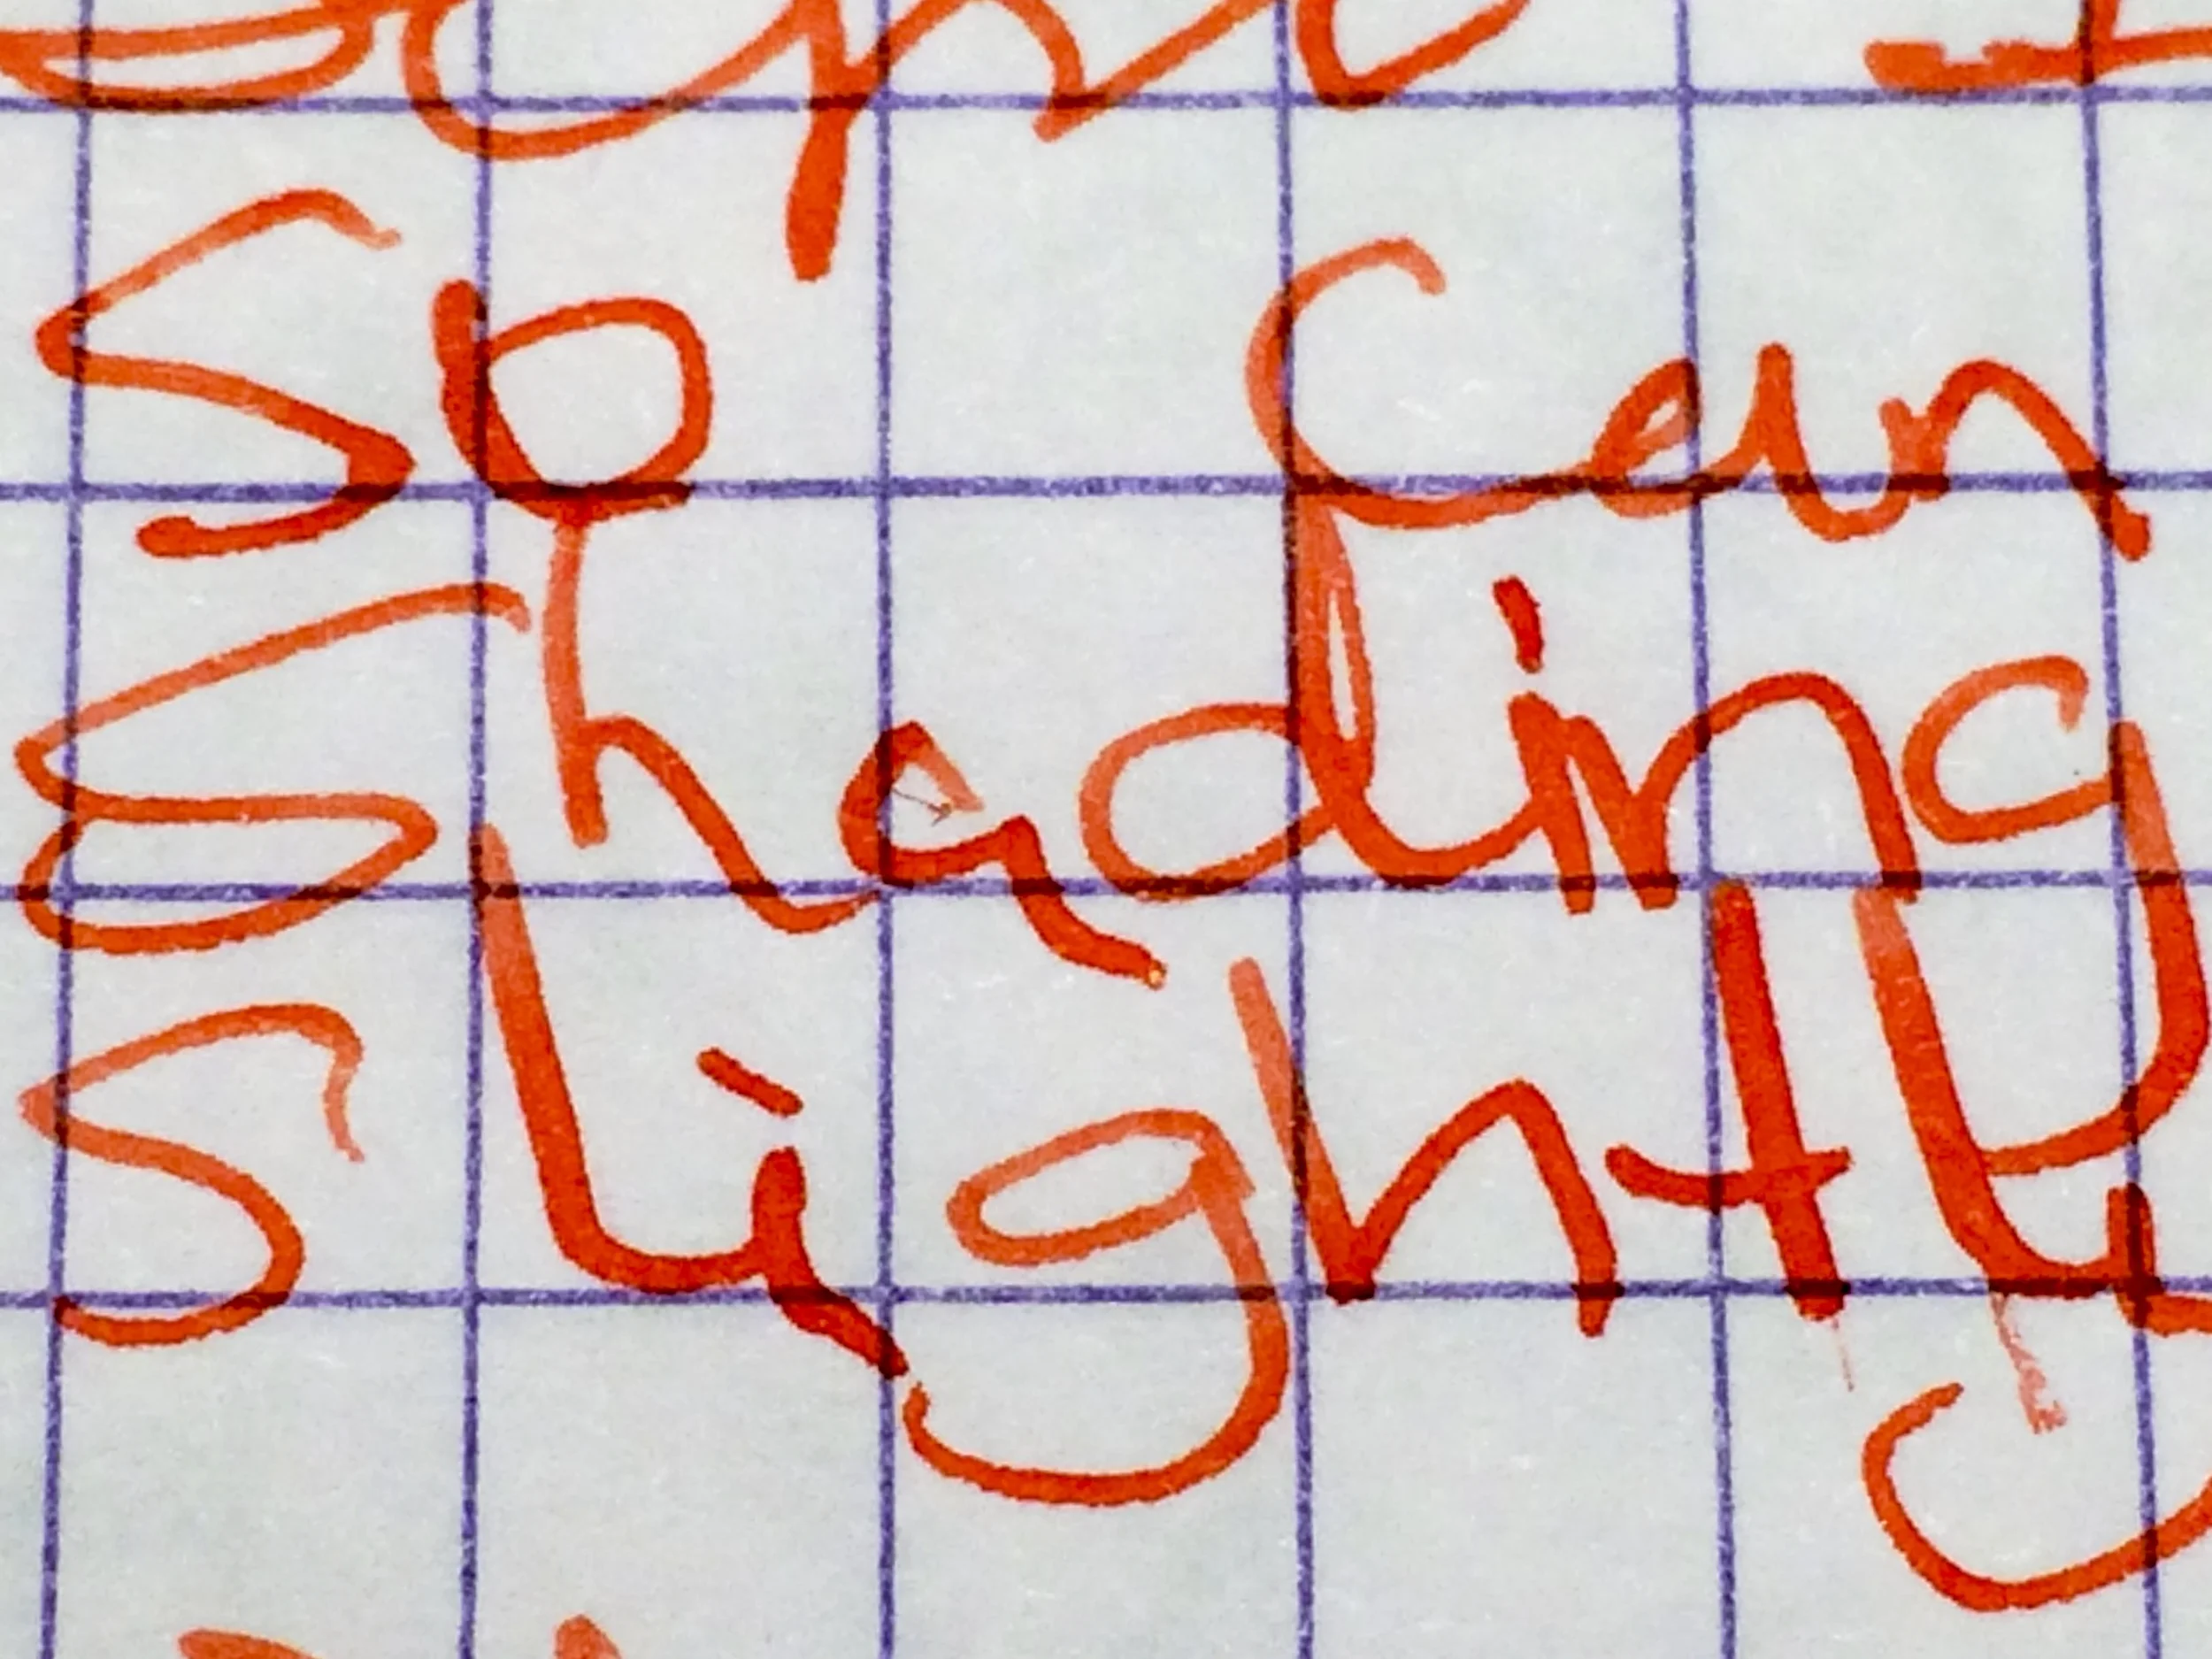 So can
shading
slightly